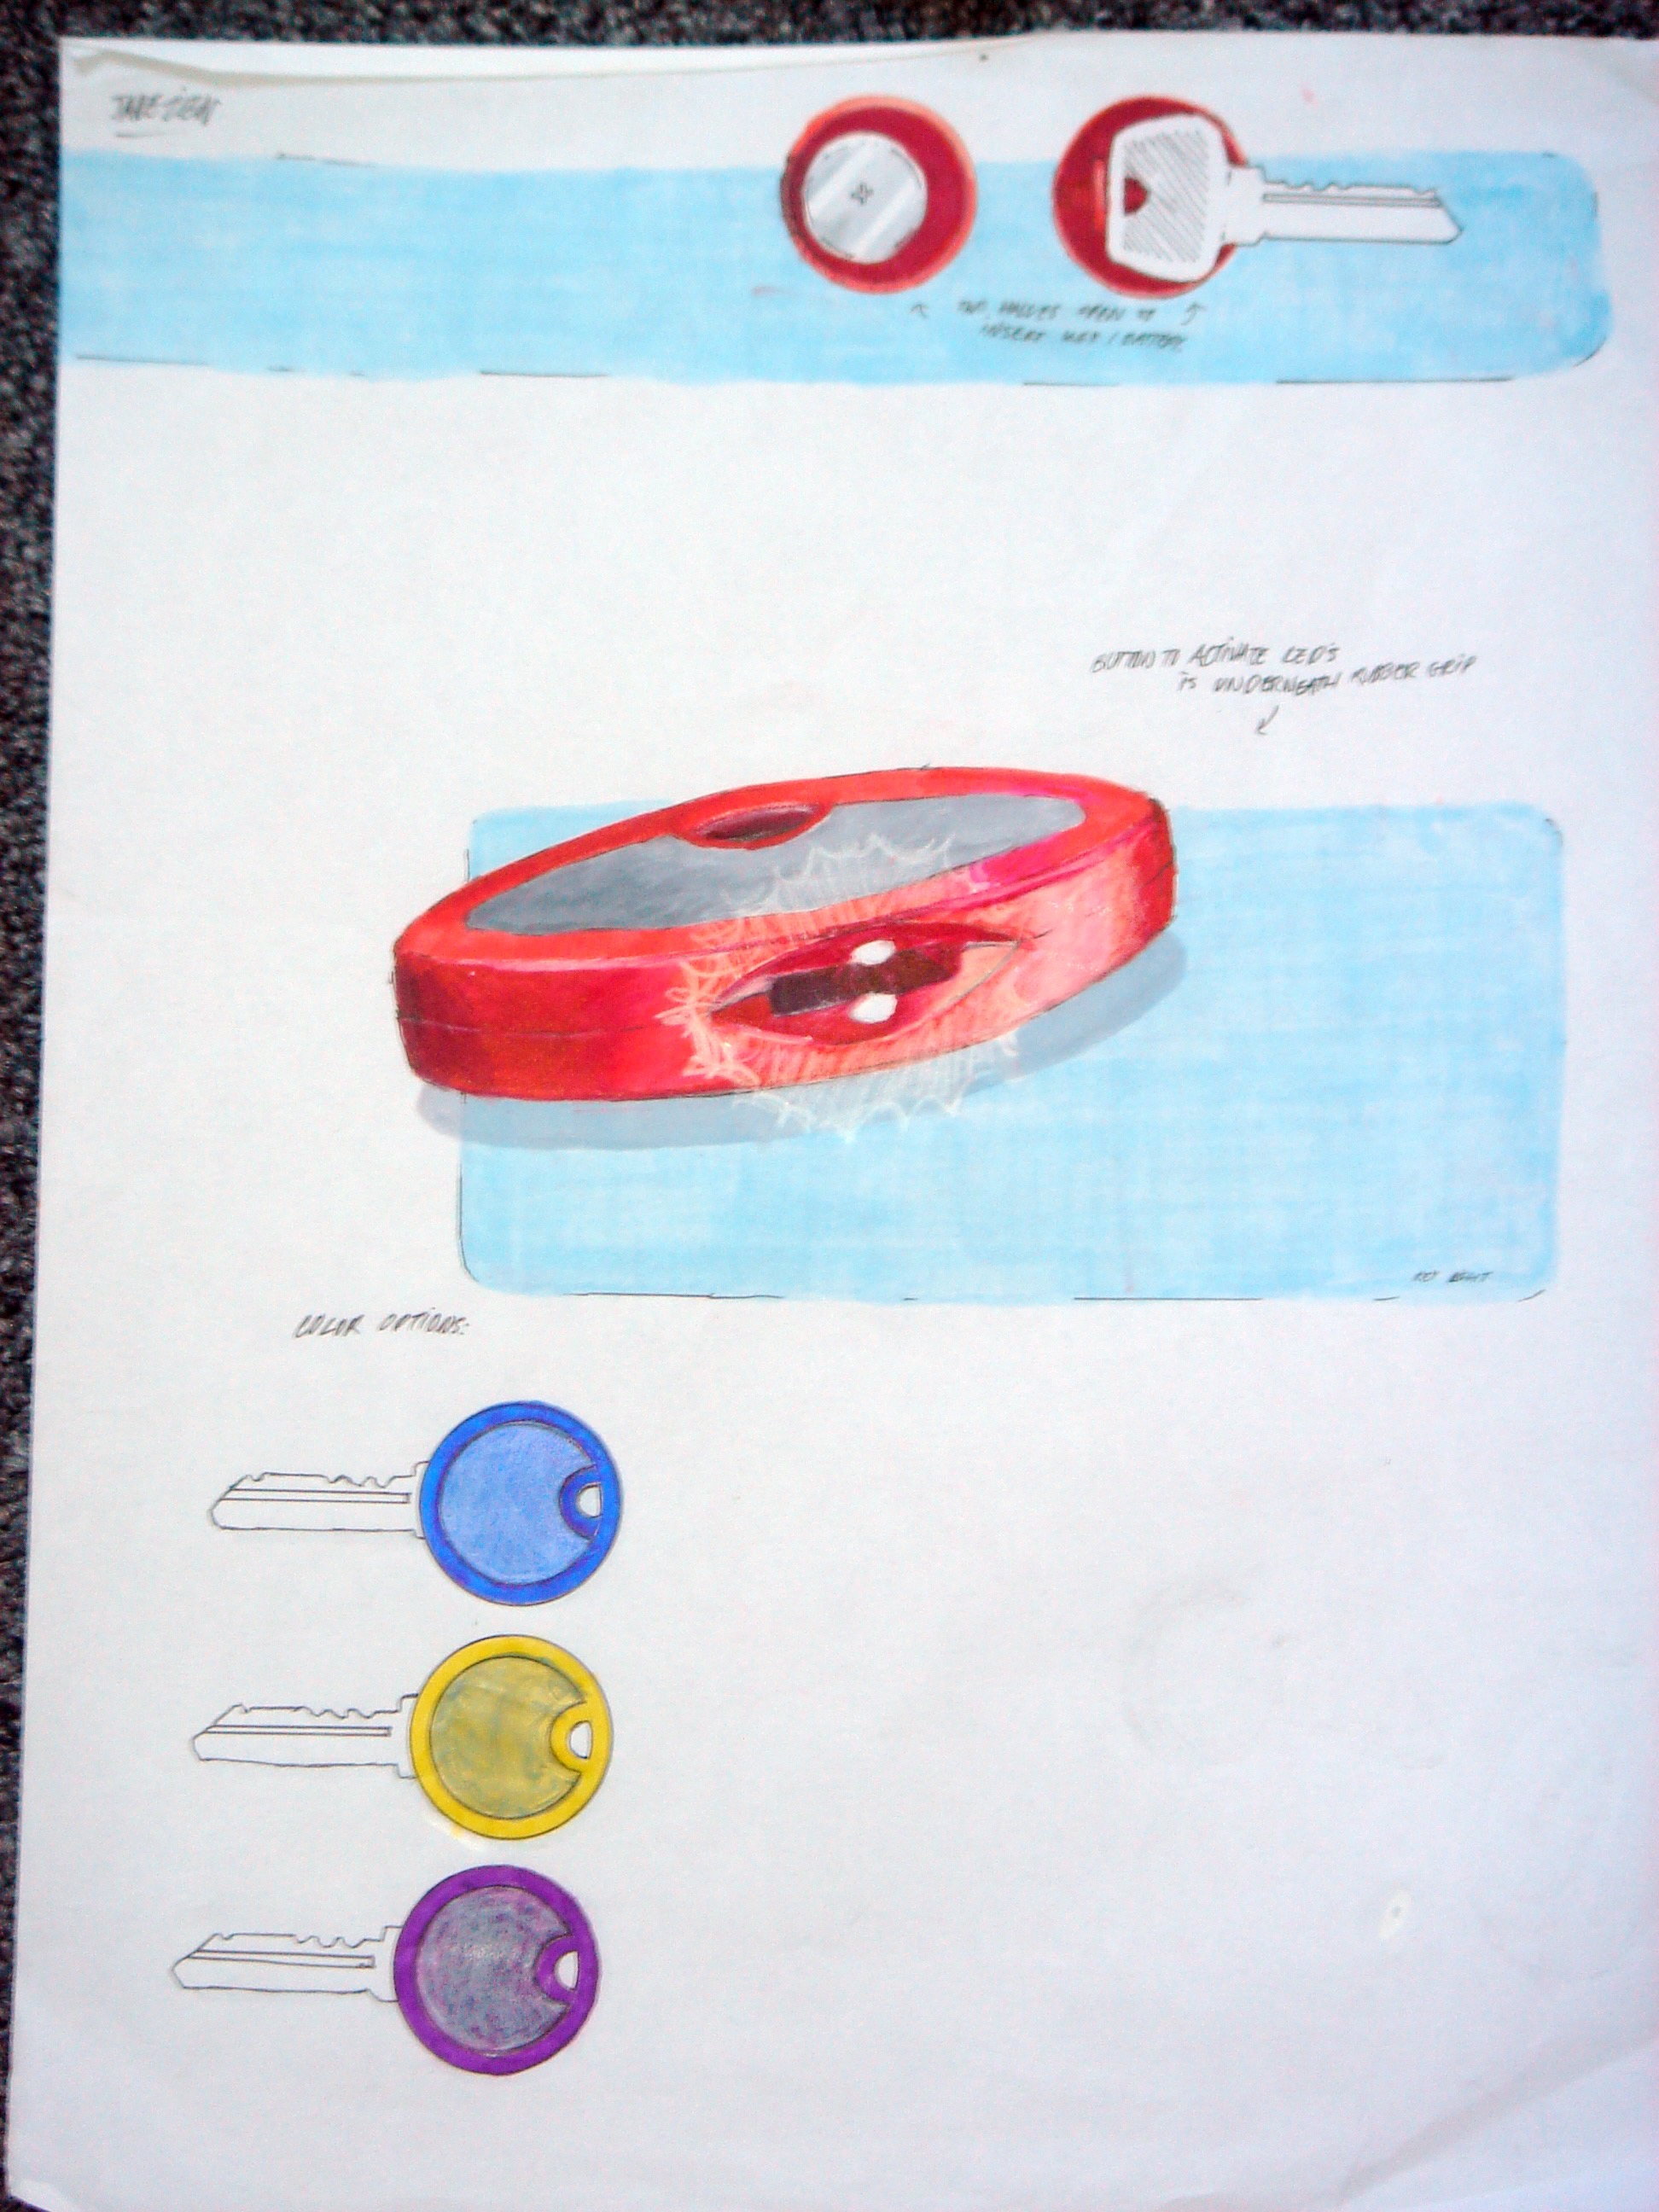 JAKE ZIEN
TWO HALVES OPEN TO
INSERT KEY / BATTERY.
BUTTON TO ACTIVATE LED'S
IS UNDERNEATH RUBBER GRIP
KEY LIGHT
COLOR OPTIONS: